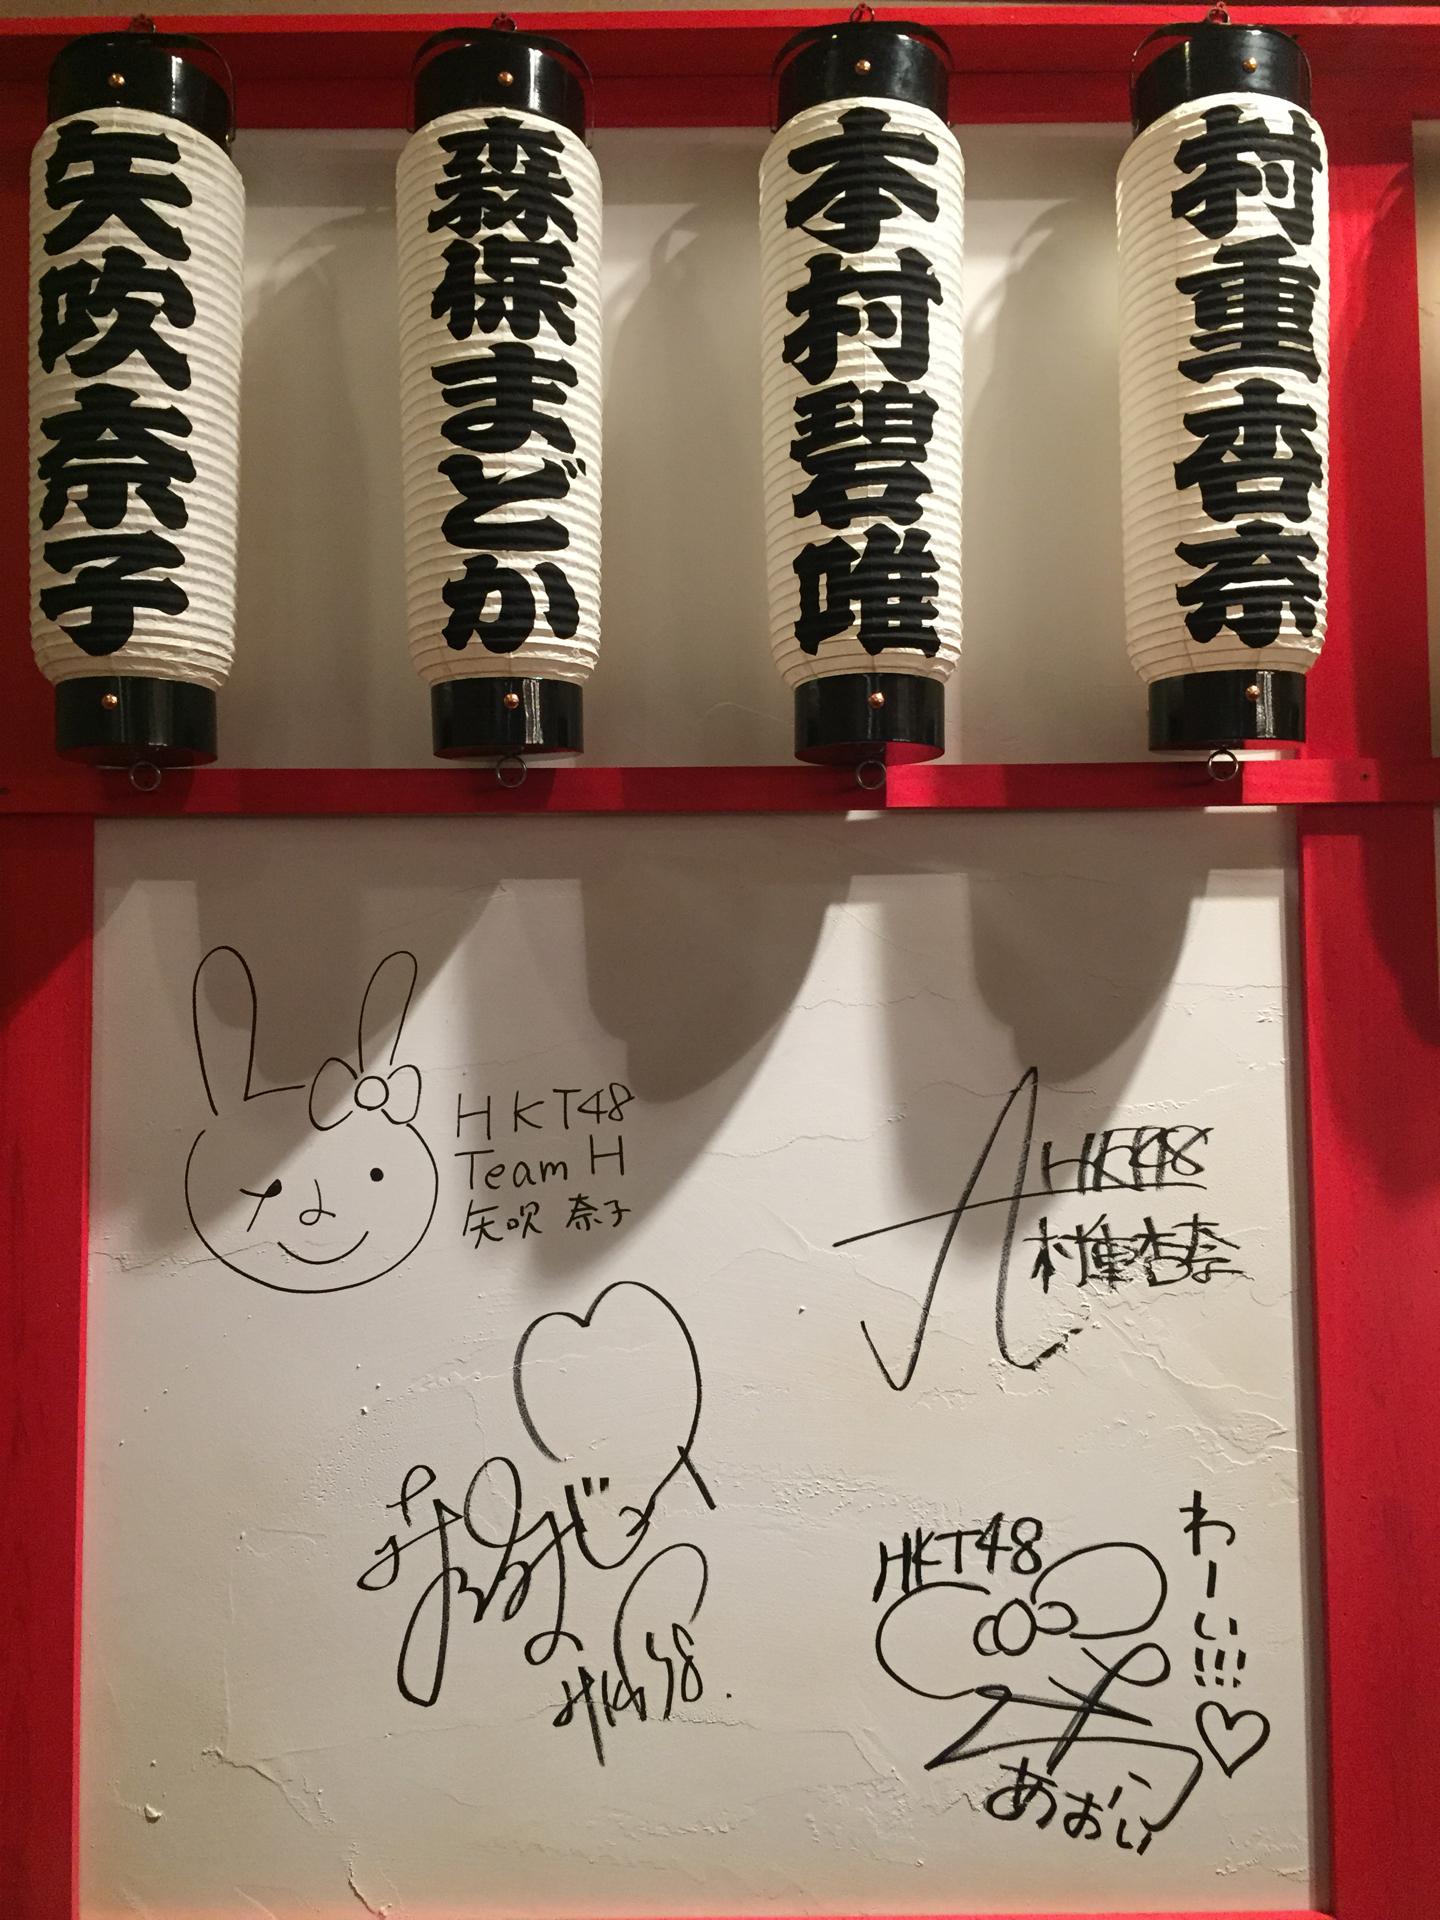 矢吹奈子
森保まどか
本村碧唯
村重杏奈
HKT48
Team H
矢吹 奈子
なこ
HKT48
村重杏奈
HKT48
HKT48
わーい!!!
あおい